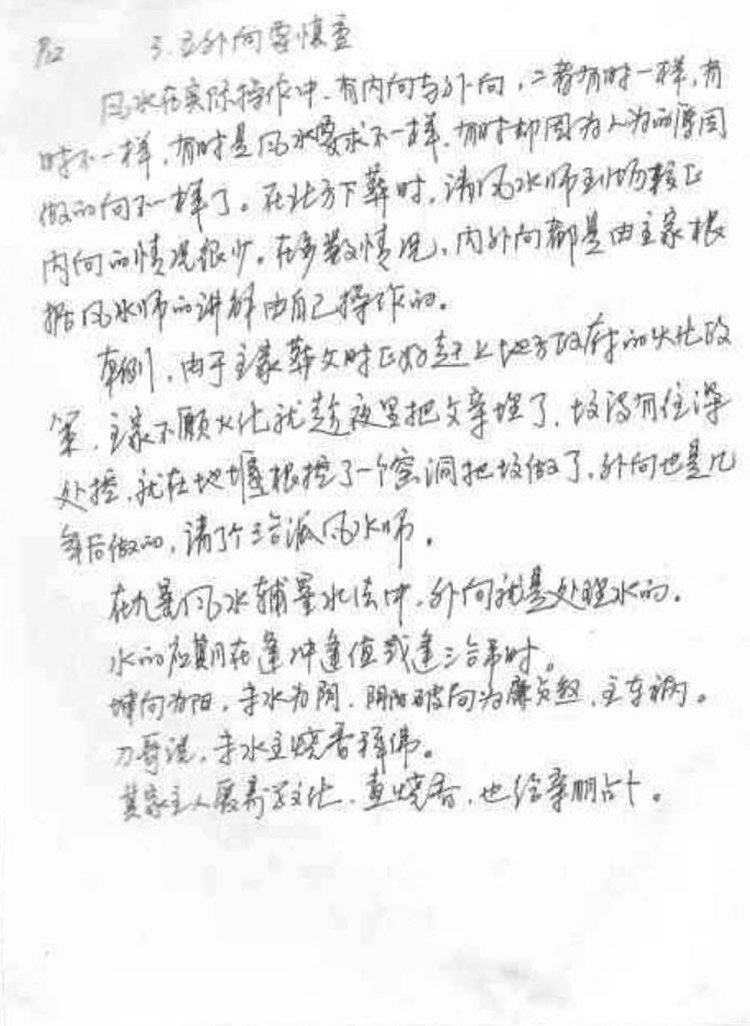 P12 3.立外向要慎重
风水在实际操作中,有内向与外向,二者有时一样,有
时不一样,有时是风水要求不一样,有时却因为人为的原因
做的向不一样了。在北方下葬时,请风水师到场校正
内向的情况很少。在多数情况,内外向都是由主家根
据风水师的讲解由自己操作的。
本例,由于主家葬父时正好赶上地方政府的火化政
策,主家不愿火化就趁夜里把父亲埋了,坟没有往深
处挖,就在地堰根挖了一个窑洞把坟做了,外向也是几
年后做的,请了个三合派风水师。
在九星风水辅星水法中,外向就是处理水的。
水的应期在逢冲逢值或逢三合吊时。
坤向为阳,辛水为阴,阴阳破向为廉贞煞,主车祸。
刀哥说,辛水主烧香拜佛。
其家主人爱易学文化,喜烧香,也给亲朋占卜。